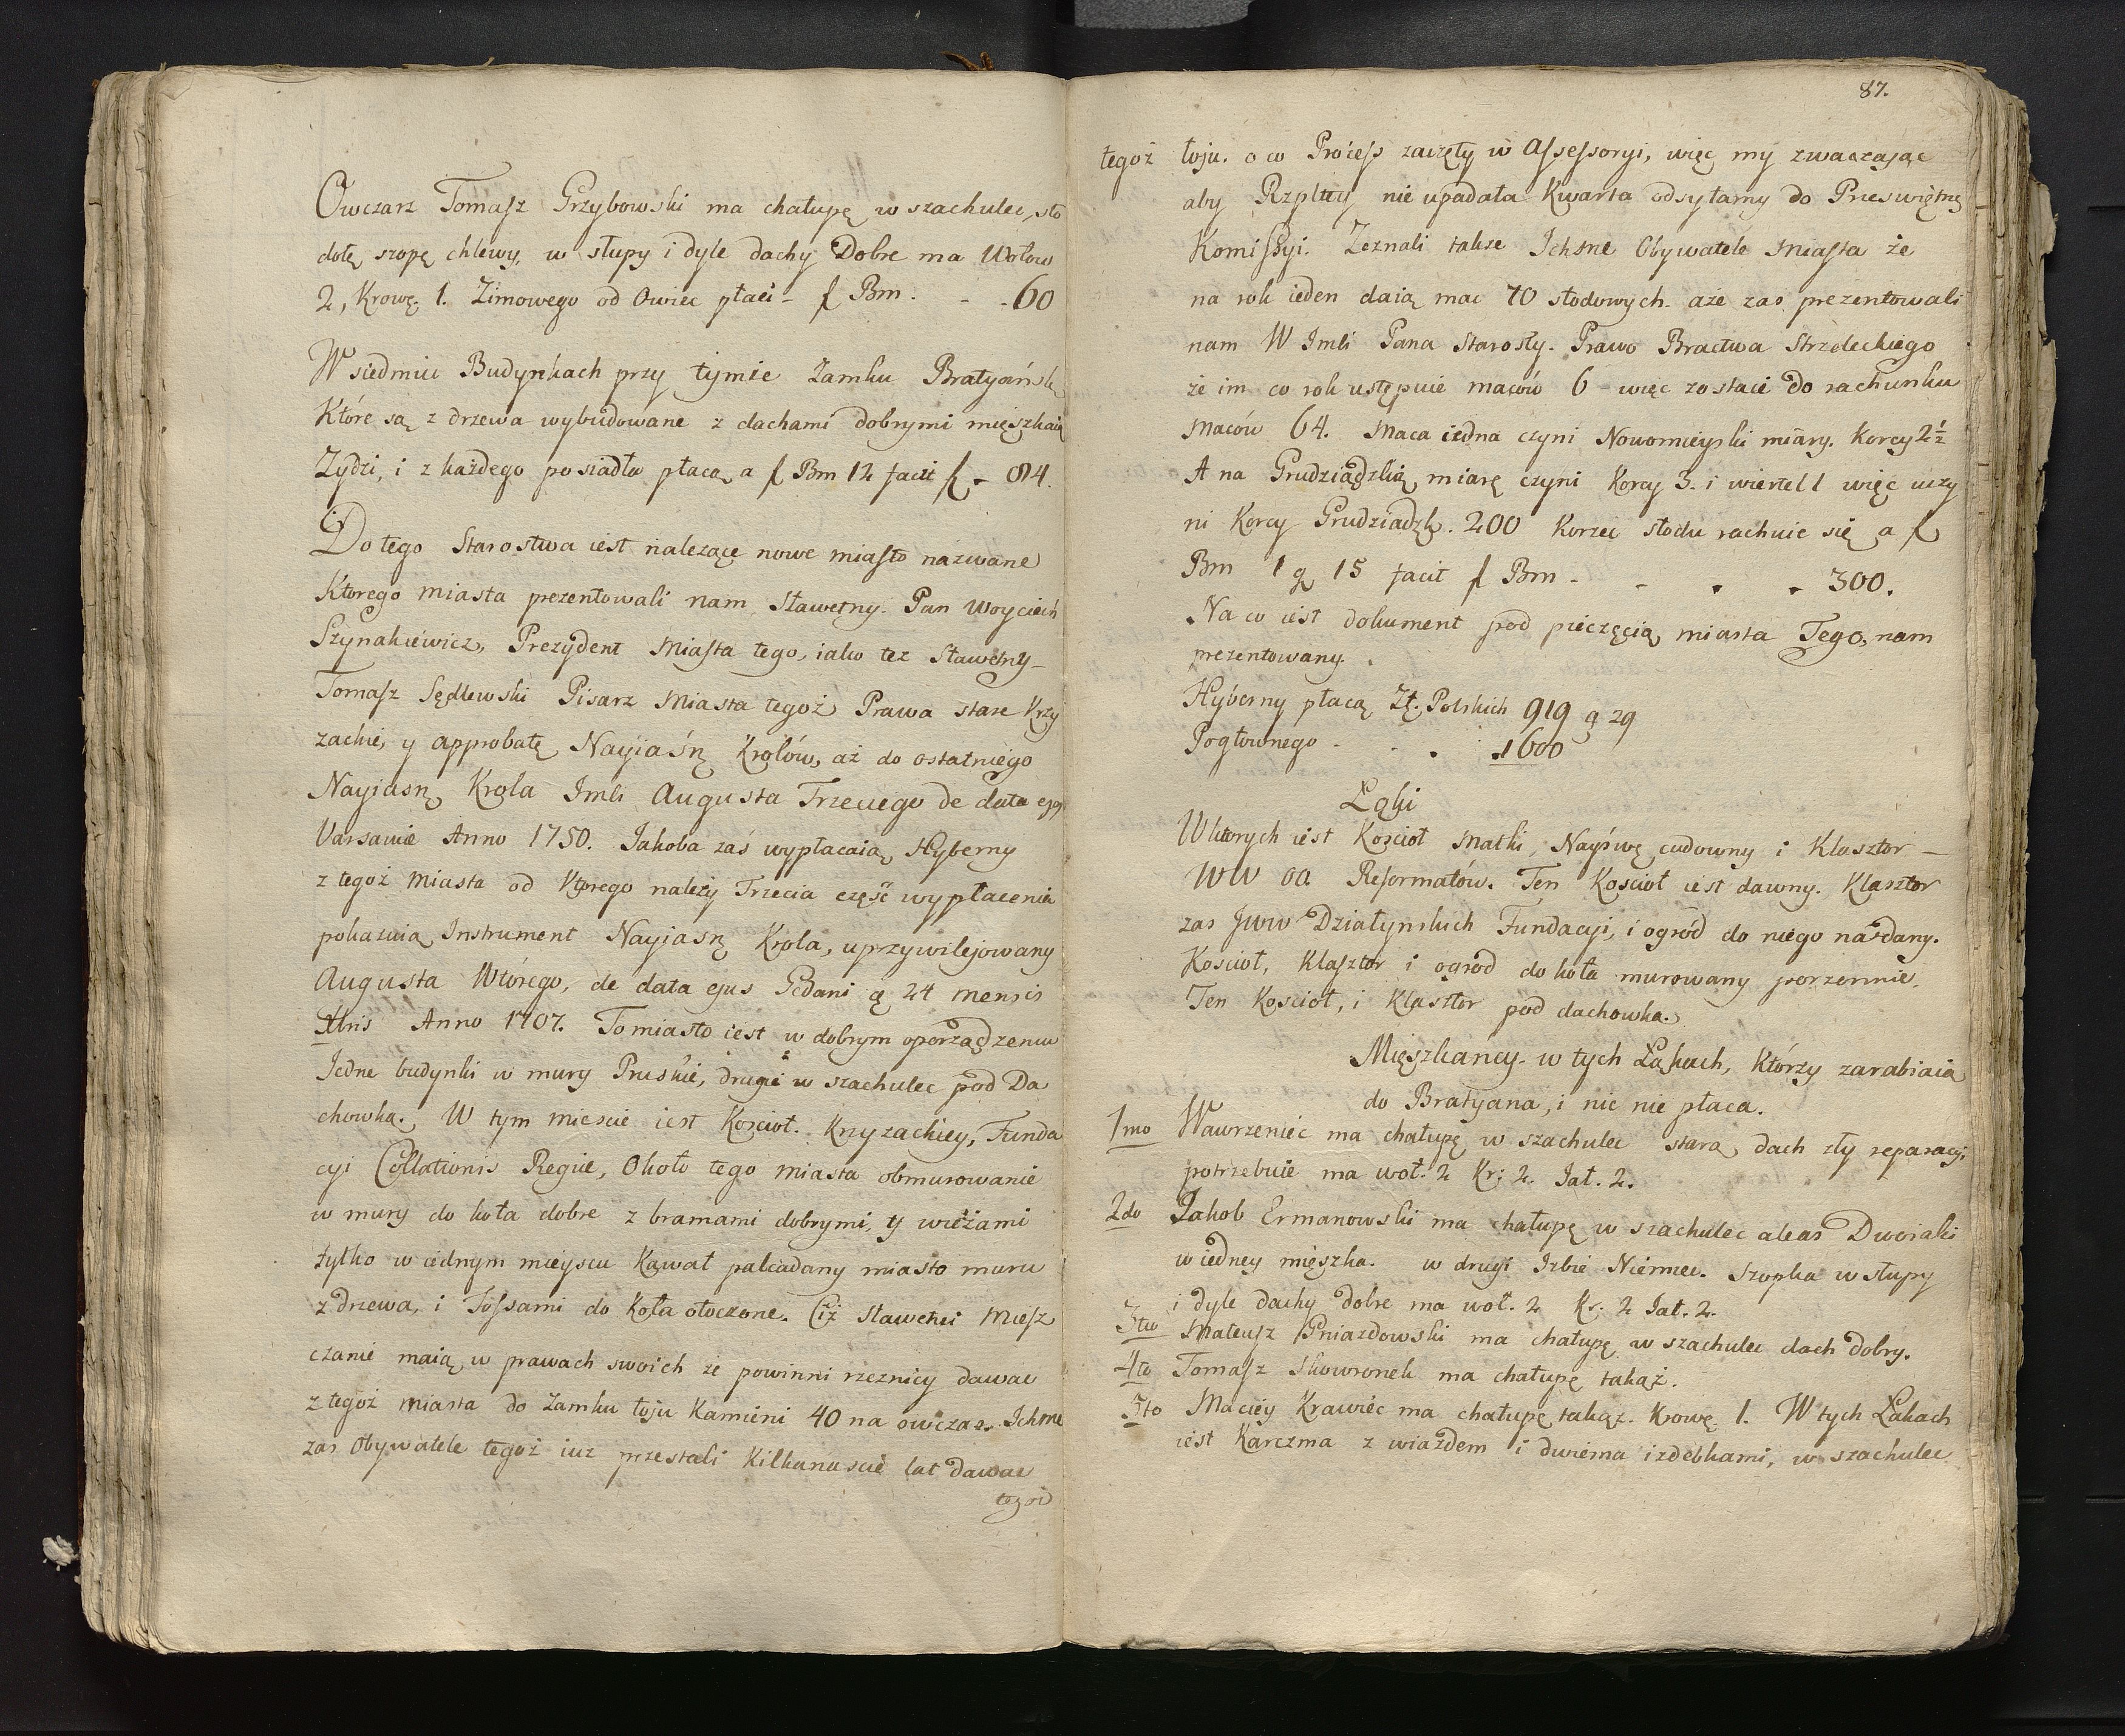 Owczarz Tomasz Grzybowski ma chałupę w szachulec, sto
dołę szopę chlewy, w słupy i dyle dachy Dobre ma Wołow
2, Krowę 1. Zimowego od Owiec płaci - f Bm. - - 60
W siedmiu Budynkach przy tymże Zamku Bratyańsk
Które są z drzewa wybudowane z dachami dobrymi mięszkaią
Zydzi, i z każdego posiadła płacą a f Bm 12 facit f - 84.
Do tego Starostwa iest należące nowe miasto nazwane
Ktorego miasta prezentowali nam Sławetny Pan Woyciech
Szynakiewicz, Prezydent Miasta tego, iako tez Sławetny
Tomasz Sędlewski Pisarz Miasta tegoż Prawa stare Krzy
zackie, y approbatę Nayiaśn Krolów, aż do ostatniego
Nayiasn Krola Imći Augusta Trzeciego de data ejus
Varsawie Anno 1750. Jakoba zaś wypłacaią Hyberny
z tegoż Miasta od Ktorego należy Trzecia część wypłacenia
pokazuią Instrument Nayiasn Krola, uprzywilejowany
Augusta Wtórego, de data ejus Gedani q 24 mensis
Anno 1707. To miasto iest w dobrym oporządzeniu
Jedne budynki w mury Pruskie, drugie w szachulec pod Da
chowką. W tym miescie iest Kościoł. Krzyzackiey Funda
cyi Collationis Regiæ, Około tego miasta obmurowanie
w mury do koła dobre z bramami dobrymi, y wieżami
tylko w iednym mieyscu Kawał palcadany miasto muru
z drzewa, i Fossami do Koła otoczone. Ciż Sławetni Miesz
czanie maią w prawach swoich że powinni rzeznicy dawac
z tegoż miasta do Zamku łoju Kamieni 40 na owczas. Ichme
zas Obywatele tegoż iuz przestali Kilkanascie lat dawac
tegoż
87.
tegoż łoju. o co Process zaczęty w Assessoryi, więc my zwaczając
aby Rzpltey nie upadała Kwarta odsyłamy do Przeświętny
Komissyi. Zeznali takze Ichme Obywatele Miasta że
na rok ieden daią mac 70 słodowych. aże zas prezentowali
nam W Imći Pana Starosty. Prawo Bractwa Strzeleckiego
że im co rok ustępuie maców 6 - więc zostaie do rachunku
Maców 64. Maca iedna czyni Nowomieyski miary. Korcy 2½
A na Grudziądzką miarę czyni Korcy 3. i wiertel 1 więc uczy
ni Korcy Grudziadzk. 200 Korzec słodu rachuie się a f
Bm 1 g 15 facit f Bm - - - - 300.
Na co iest dokument pod pieczęcią miasta Tego, nam
prezentowany.
Hyberny płacą Zł. Polskich 919 g 29
Pogłownego - . . 1600
Łąki
W ktorych iest Kościoł Matki Nayśwę cudowny i Klasztor
WW OO Reformatów. Ten Kościoł iest dawny. Klasztor
zas Jww Działynskich Fundacyi, i ogród do niego nadany.
Kościoł, Klasztor i ogrod do koła murowany porzennie.
Ten Kościoł, i Klasztor pod dachowka.
Mięszkańcy w tych Łąkach, Którzy zarabiaią
do Bratyana, i nic nie płaca.
1mo Wawrzeniec ma chałupę w szachulec stara, dach zły reparacyi
potrzebuie ma woł. 2 Kr: 2. Jał. 2.
2do Jakob Ermanowski ma chałupę w szachulec aleas Dworaki
w iedney mięszka. w drugi Izbie Niemiec. Szopka w słupy
i dyle dachy dobre ma woł. 2 Kr. 2 Jał. 2.
3tio Mateusz Gniazdowski ma chałupę w szachulec dach dobry.
4to Tomasz Skowronek ma chałupę takąż.
5to Maciey Krawiec ma chałupę takąz. Krowę 1. W tych Łąkach
iest Karczma z wiazdem i dwiema izdebkami, w szachulec